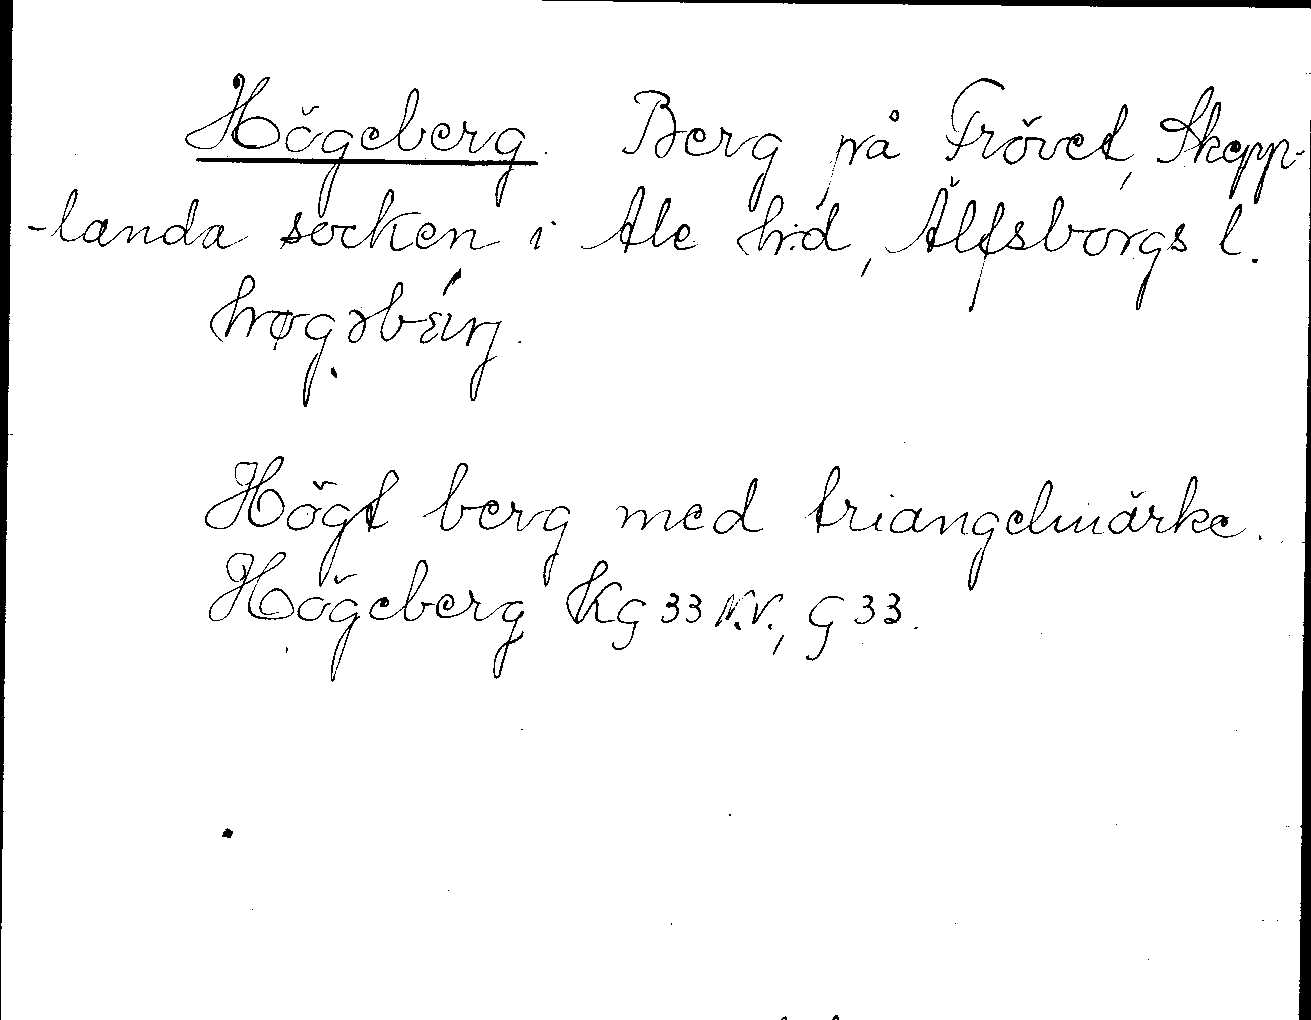 Högeberg. Berg på Frövet, Skepp-
-landa socken i Ale h:d, Älfsborgs l.
Högt berg med triangelmärke.
Högeberg KG 33 N.V., G 33.